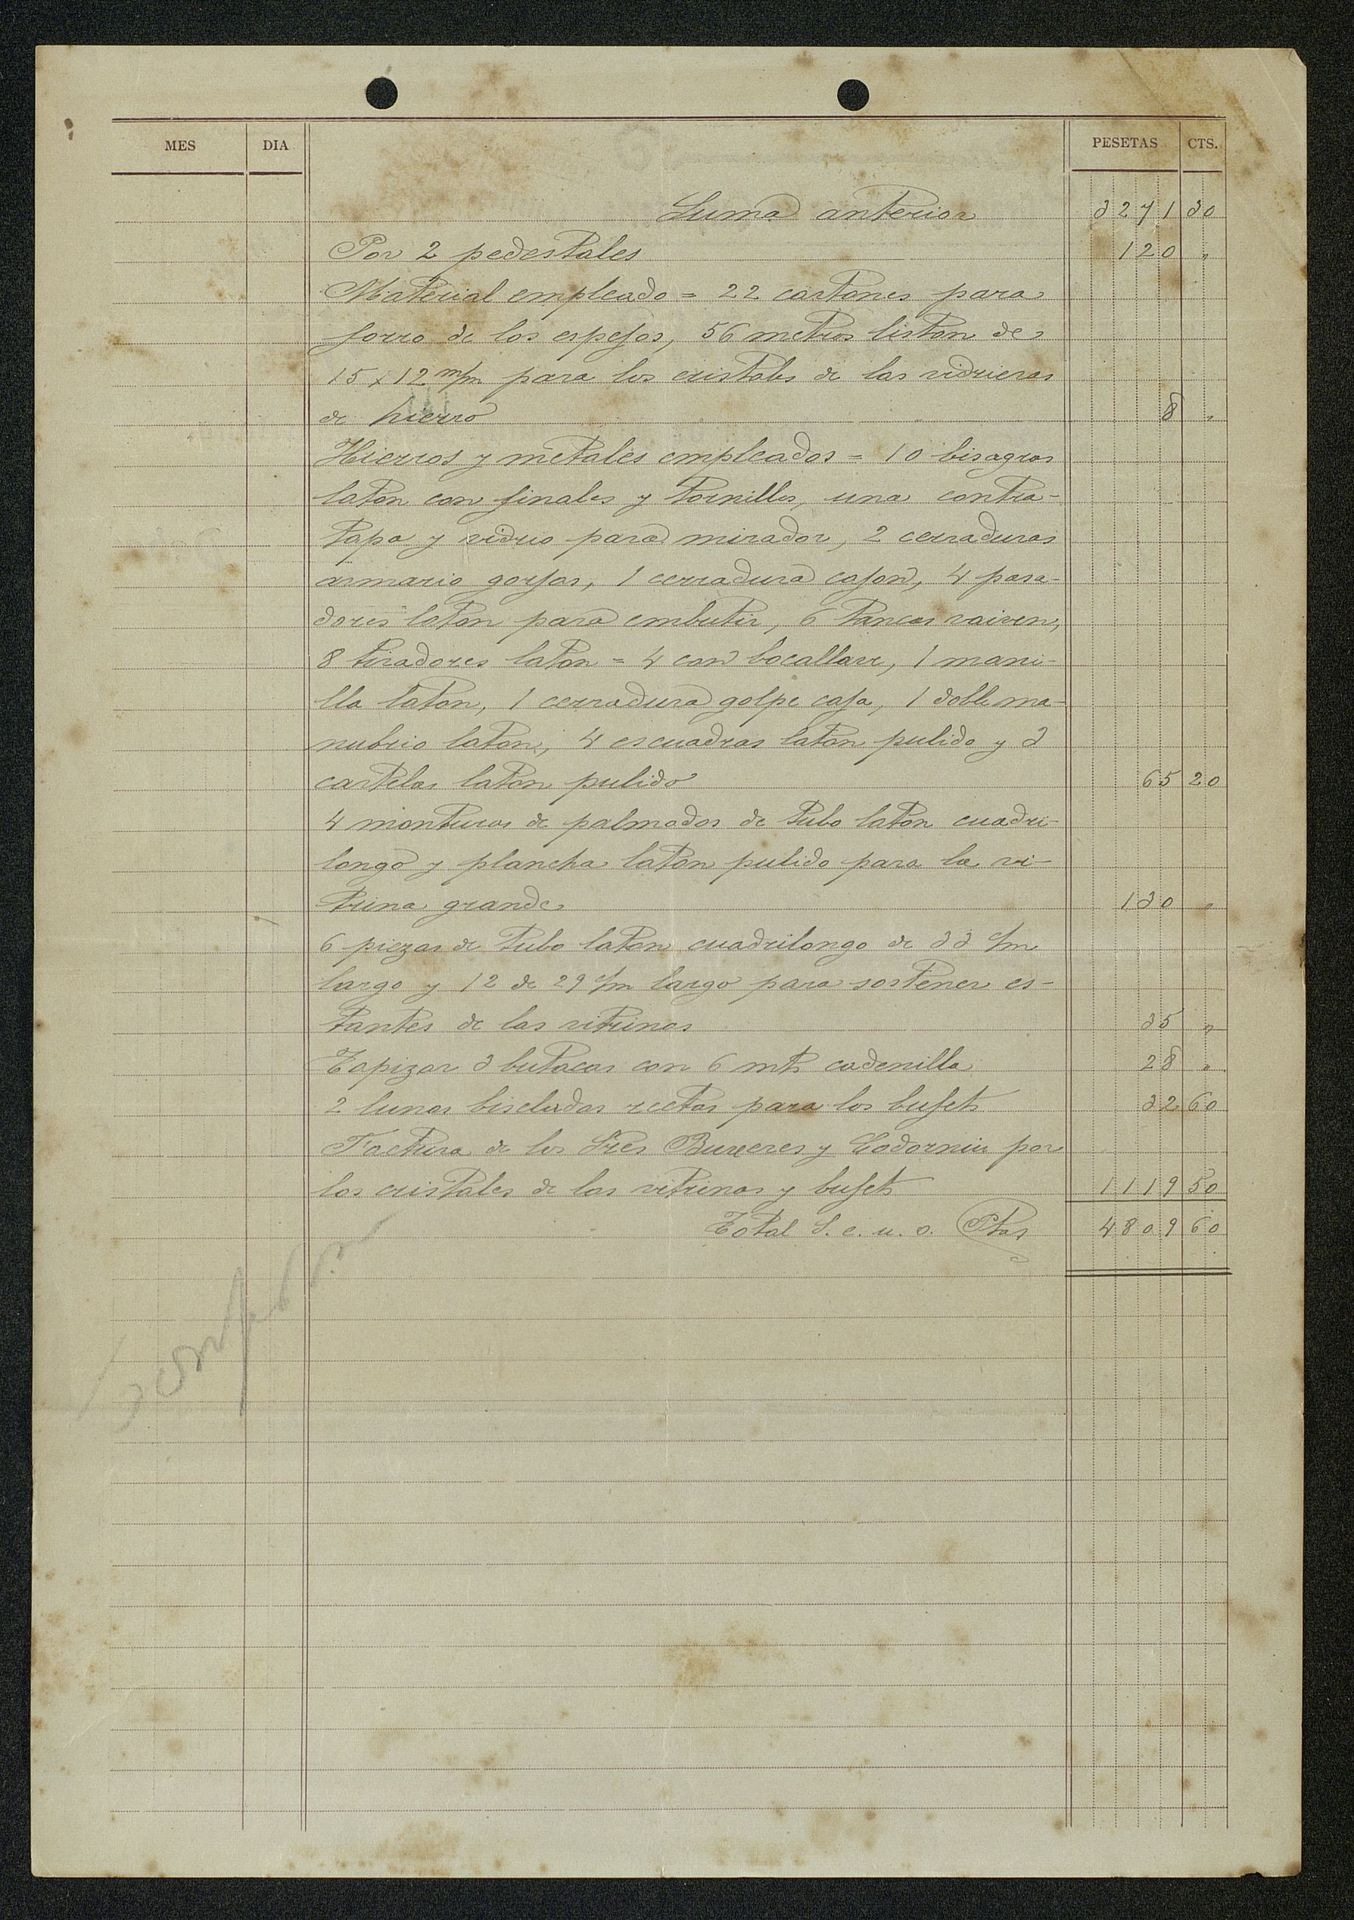 MES DIA PESETAS CTS.
Suma anterior 3271 30
Por 2 pedestales 120 "
Material empleado = 22 cartones para
forro de los espejos, 56 metros liston de
15 x 12 m/m para los cristales de las vidrieras
de hierro 8 "
Hierros y metales empleados = 10 bisagras
laton con finales y tornillos, una contra-
tapa y vidrio para mirador, 2 cerraduras
armario gorjas, 1 cerradura cajon, 4 pasa-
dores laton para embutir, 6 tancas vaiven,
8 tiradores laton = 4 con bocallave, 1 mani-
lla laton, 1 cerradura golpe caja, 1 doble ma-
nubrio laton, 4 escuadras laton pulido y 3
cartelas laton pulido 65 20
4 monturas de palmados de tubo laton cuadri-
longo y plancha laton pulido para la vi-
trina grande 130 "
6 piezas de tubo laton cuadrilongo de 33 c/m
largo y 12 de 29 c/m largo para sostener es-
tantes de las vitrinas 35 "
Tapizar 3 butacas con 6 mts cadenilla 28 "
2 lunas biseladas rectas para los bufets 32 60
Factura de los Sres Buxeres y Codorniu por
los cristales de las vitrinas y bufets 1119 50
Total S. e. u. o. Ptas 4809 60
conforme